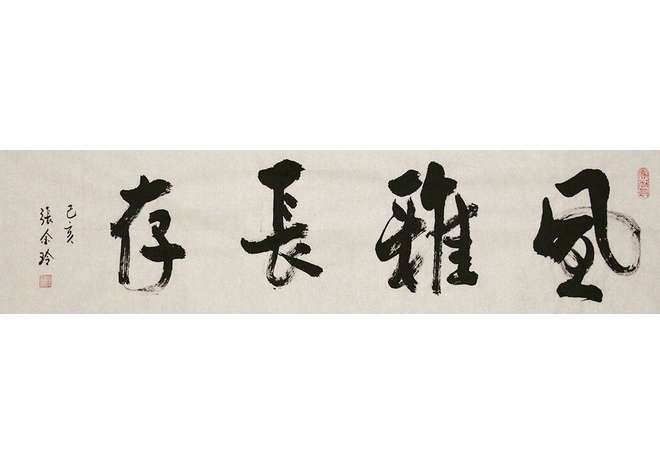 風雅長存
己亥
張金玲